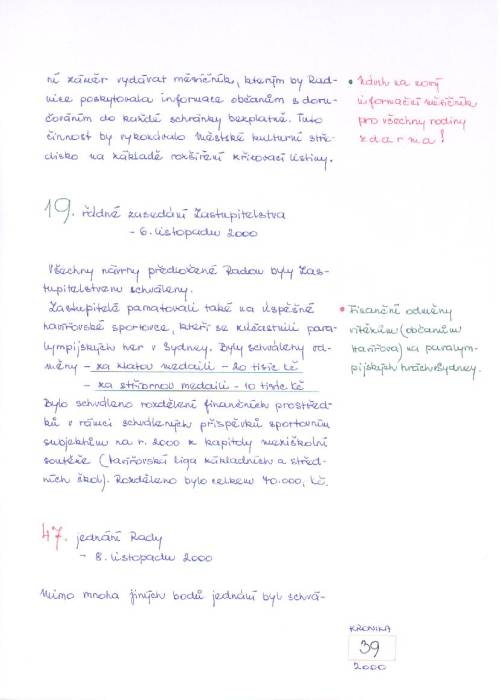 ní záměr vydávat měsíčník, kterým by Rad-
nice poskytovala informace občanům s doru-
čováním do každé schránky bezplatně. Tuto
činnost by vykonávalo Městské kulturní stře-
disko na základě rozšíření zřizovací listiny.
• Návrh na nový
informační měsíčník
pro všechny rodiny
zdarma!
19. řádné zasedání Zastupitelstva
- 6. listopadu 2000
Všechny návrhy předložené Radou byly Zas-
tupitelstvem schváleny.
Zastupitelé pamatovali také na úspěšné
havířovské sportovce, kteří se účastnili para-
lympijských her v Sydney. Byly schváleny od-
měny - za zlatou medaili - 20 tisíc Kč
- za stříbrnou medaili - 10 tisíc Kč
Bylo schváleno rozdělení finančních prostřed-
ků v rámci schválených příspěvků sportovním
subjektům na r. 2000 z kapitoly meziškolní
soutěže (Havířovská liga základních a střed-
ních škol). Rozděleno bylo celkem 40.000,- Kč.
• Finanční odměny
vítězům (občanům
Havířova) na paralym-
pijských hrách v Sydney.
47. jednání Rady
- 8. listopadu 2000
Mimo mnoha jiných bodů jednání byl schvá-
KRONIKA
39
2000